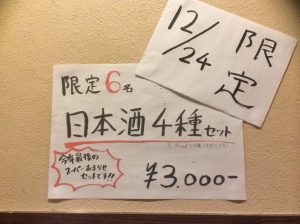 12/24
限定
限定6名
日本酒4種セット
今年最後の
スーパーおまかせ
セットです!!
¥3.000-